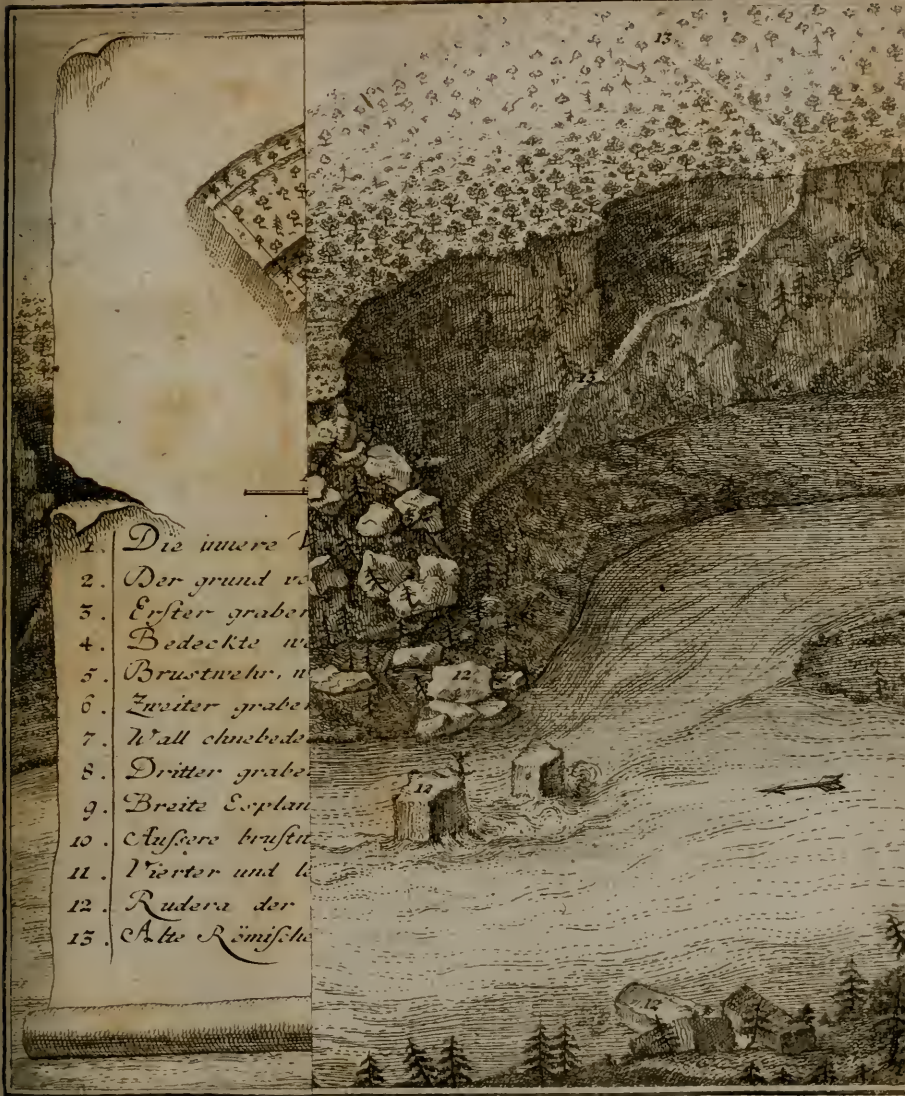 13
13
1. Die innere
2. Der grund vo
3. Erster graben
4. Bedeckte we
5. Brustwehr, n
6. Zweiter graben
7. Wall ohnebede
8. Dritter grabe
9. Breite Esplan
10. Äussere brustw
11. Vierter und le
12. Rudera der
13. Alte Römische
12
12
12